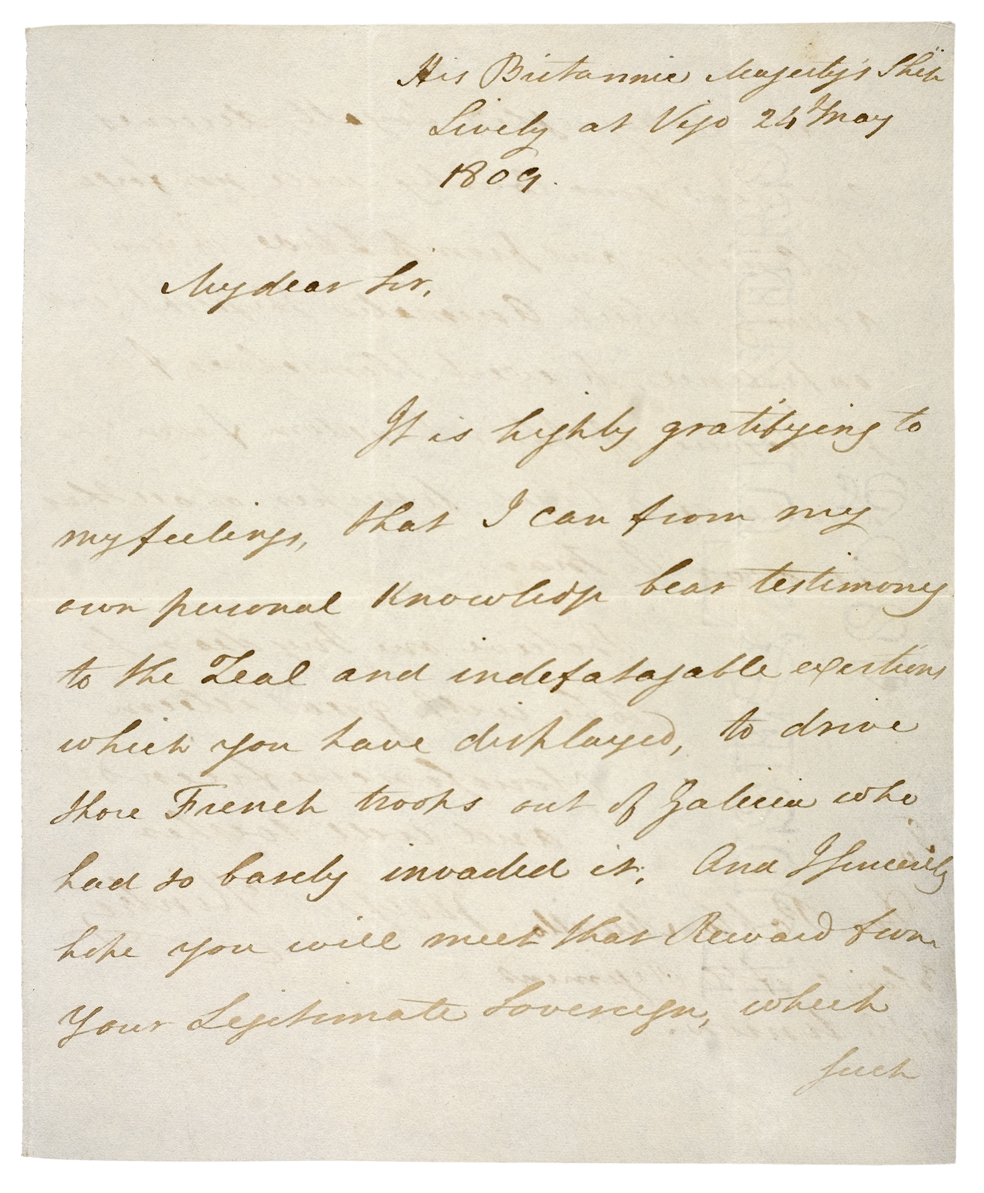 His Britannic Majesty's Ship
Lively at Vigo 24 May
1809.
My dear Sir,
It is highly gratifying to
my feelings, that I can from my
own personal Knowledge bear testimony
to the Zeal and indefatagable exertions
which you have displayed, to drive
those French troops out of Galicia who
had so basely invaded it; And I sincerely
hope you will meet that Reward from
Your Legitimate Sovereign, which
such